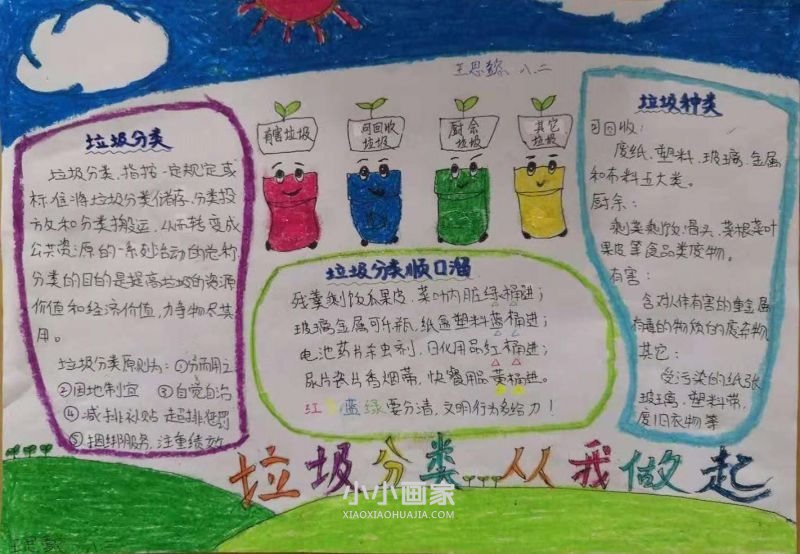 王思懿 八.二
垃圾分类
垃圾分类,指按一定规定或
标准将垃圾分类储存、分类投
放和分类搬运,从而转变成
公共资源的一系列活动的总称
分类的目的是提高垃圾的资源
价值和经济价值,力争物尽其
用。
垃圾分类原则为:①分而用之
②因地制宜 ③自觉自治
④减排补贴 超排惩罚
⑤捆绑服务,注重绩效
有害垃圾
可回收
垃圾
厨余
垃圾
其它
垃圾
垃圾分类顺口溜
残羹剩饭瓜果皮,菜叶内脏绿桶进;
玻璃金属可乐瓶,纸盒塑料蓝桶进;
电池药片杀虫剂,日化用品红桶进;
尿片瓷片香烟蒂,快餐用品黄桶进。
红 蓝绿要分清,文明行为多给力!
垃圾种类
可回收:
废纸、塑料、玻璃、金属
和布料五大类。
厨余:
剩菜剩饭、骨头、菜根菜叶
果皮等食品类废物。
有害:
含对人体有害的重金属
有毒的物质的废弃物
其它:
受污染的纸张
玻璃、塑料带、
废旧衣物等
垃圾分类 从我做起
小小画家
XIAOXIAOHUAJIA.COM